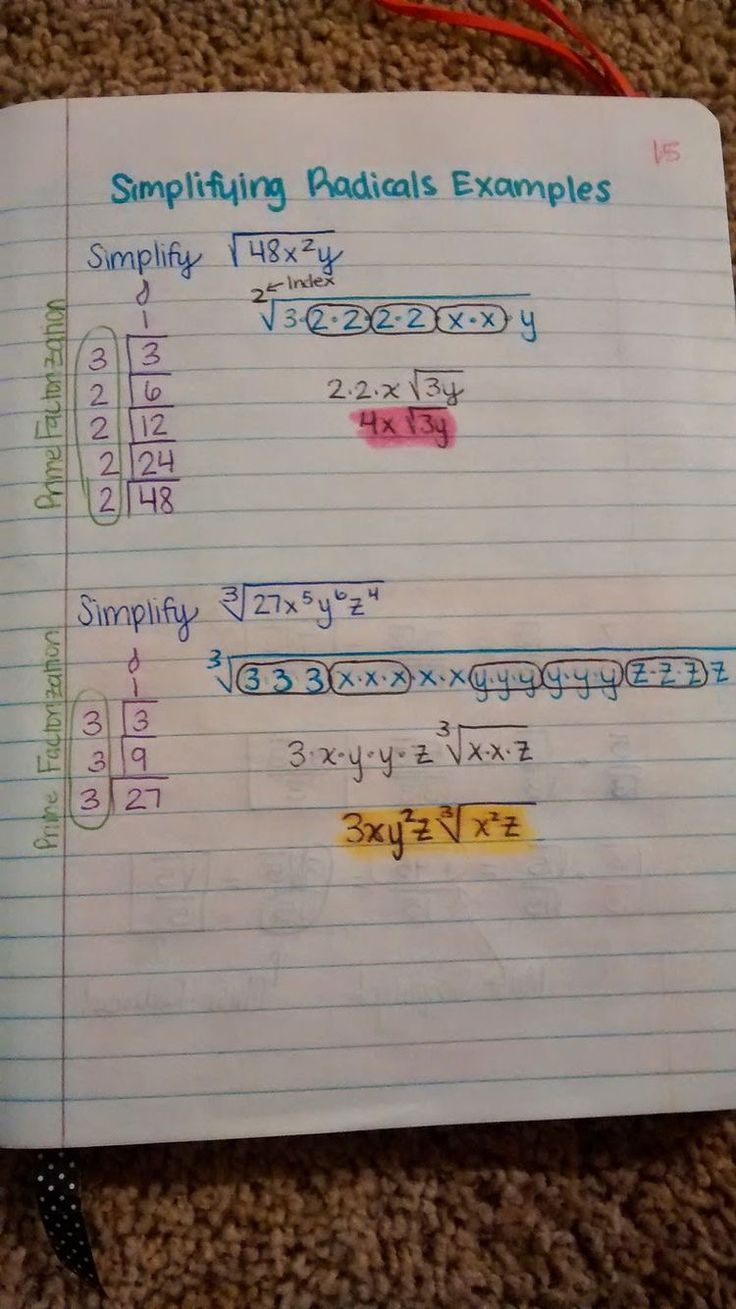 15
Simplifying Radicals Examples
Simplify √48x²y
2 ← Index
√3·2·2·2·2·x·x·y
Prime Factorization
1
3 3
2 6
2 12
2 24
2 48
2·2·x√3y
4x√3y
Simplify ∛27x⁵y⁶z⁴
∛3·3·3·x·x·x·x·x·y·y·y·y·y·y·z·z·z z
Prime Factorization
1
3 3
3 9
3 27
3·x·y·y·z ∛x·x·z
3xy²z∛x²z